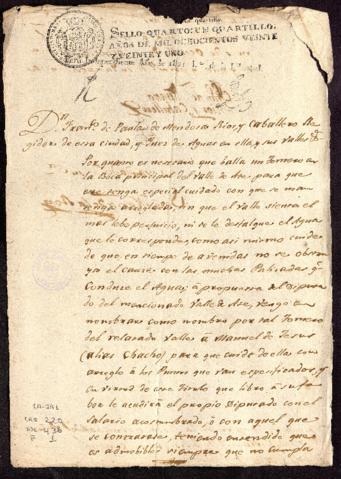 SELLO QUARTO: UN QUARTILLO,
AÑOS DE MIL OCHOCIENTOS VEINTE
Y VEINTE Y UNO.
Dn. Franco. de Paula de Mendoza Rios, y Caballero Re
gidor de esta ciudad, y Juez de Aguas en ella, y sus Valles &a.
Por quanto es necesario que halla un Tomero en
la Boca principal del Valle de Ate, para que
ese tenga especial cuidado con que se man
que el Valle sienta el
mas leve perjuicio, ni se le desfalque el Agua
que le corresponde, como asi mismo cuide
de que en tiempo de avenidas no se obstru
ya el cauce con las muchas Palisadas qe.
conduce el Agua; á propuesta del Diputa
do del mencionado Valle de Ate, vengo en
nombrar como nombro por tal Tomero
del relatado Valle a Manuel de Jesus
(alias Chacho) para que cuide de ellas con
arreglo á los Puntos que van especificados, y
en virtud de este Titulo que libro á su fa
bor le acudirá el propio Diputado con el
salario acostumbrado, ó con aquel que
se contratare, teniendo entendido que
es admobible siempre que no cumpla
CA-JA1
CAJ 220
DOC 438
F 1